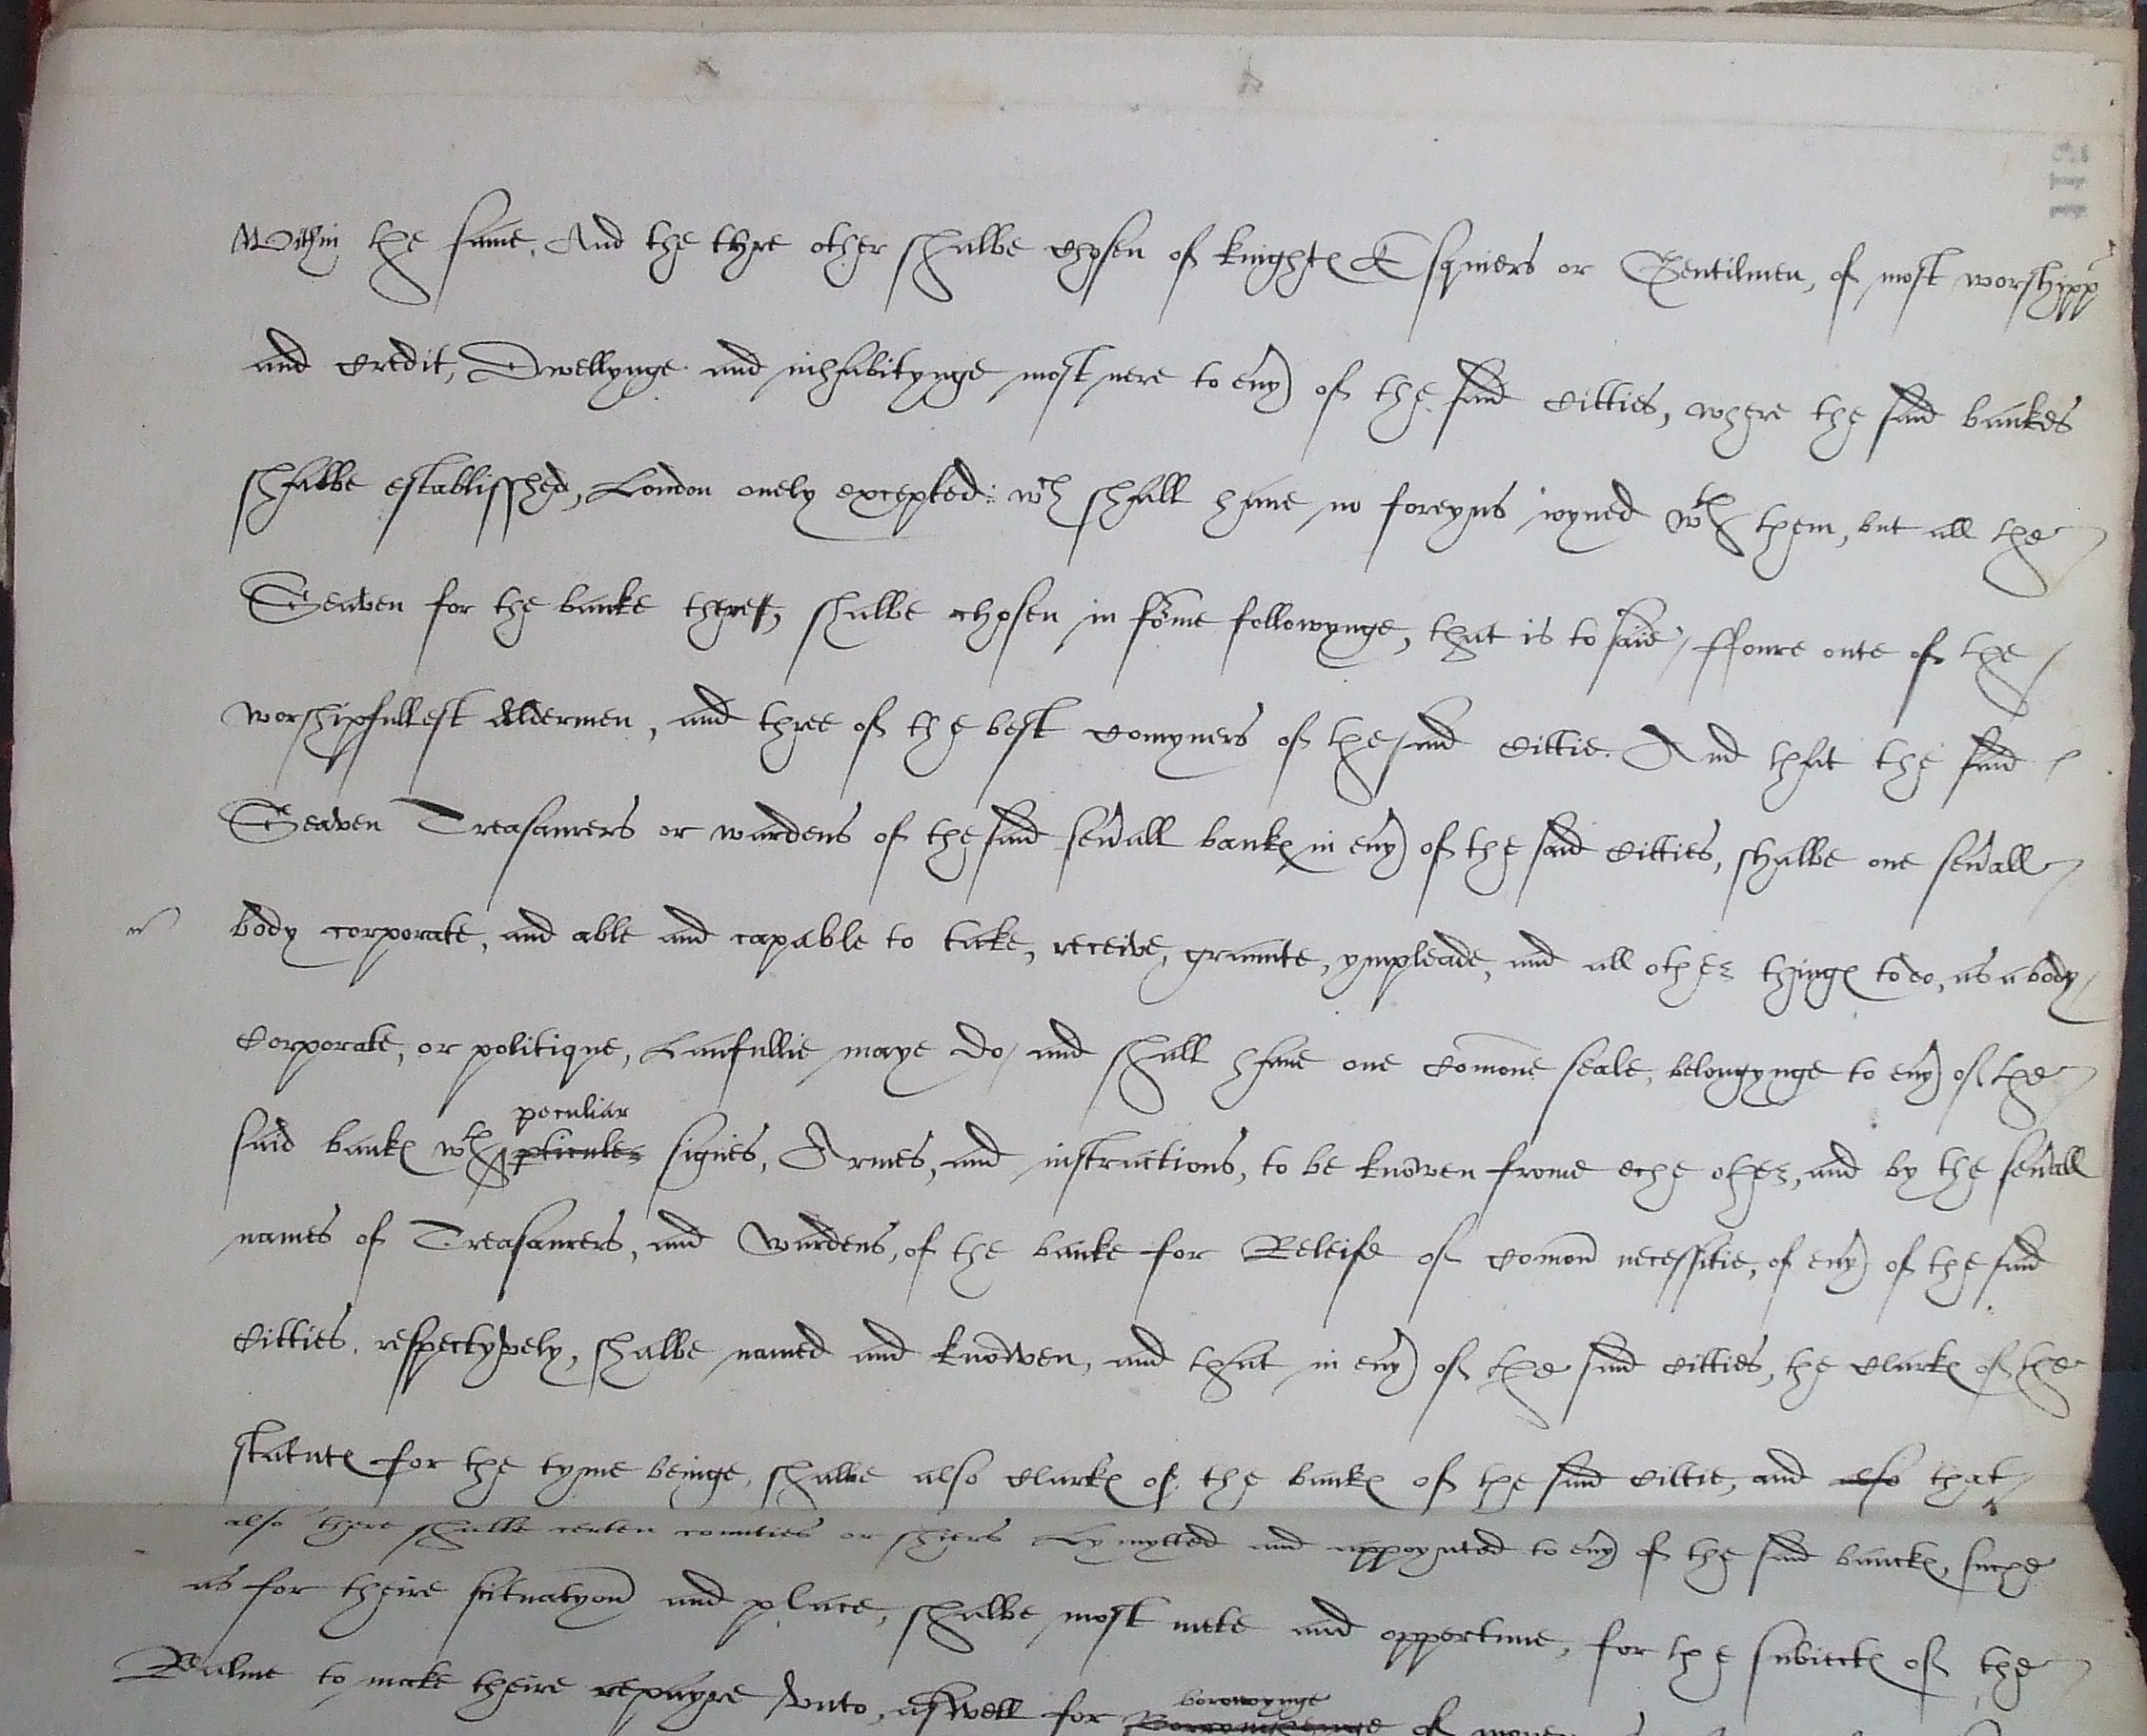 Within the same. And the thre other shalbe chosen of knightes Esquiers or Gentilmen, of most worshipp
and credit, Dwellynge and inhabitynge most nere to eny of the said Citties, where the said bankes
shalbe establisshed, London onely excepted: wch shall have no foreyns ioyned wth them, but all the
Seaven for the banke there, shalbe chosen in forme followynge, that is to saie / ffoure oute of the
worshipfullest Aldermen, and three of the best comyners of the said Cittie. And that the said
Seaven Treasaurers or wardens of the said sevrall bankes in evy of the said Citties, shalbe one sevrall
body corporate, and able and capable to take, receive, graunte, ympleade, and all other thinges to do, as a body
Corporate, or politique, Laufullie maye do, and shall have one Comone seale, belongynge to evy of the
peculiar
said bankes wth pticuler signes, Armes, and instructions, to be knowen frome eche other, and by the sevrall
names of Treasaurers, and Wardens, of the banke for Releife of comon necessitie, of evy of the said
Citties, respectyvely, shalbe named and knowen, and that in evy of the said Citties, the Clarkes of the
statutes for the tyme beinge, shalbe also Clarkes of the bankes of the said Cittie, and also that
also there shalbe certen counties or shiers Lymytted and appoynted to evy of the said banckes, suche
as for theire scituatyon and place, shalbe most mete and opportune, for the subiectes of the
Realme to make theire repayre vnto, aswell for
borowynge
of money
113